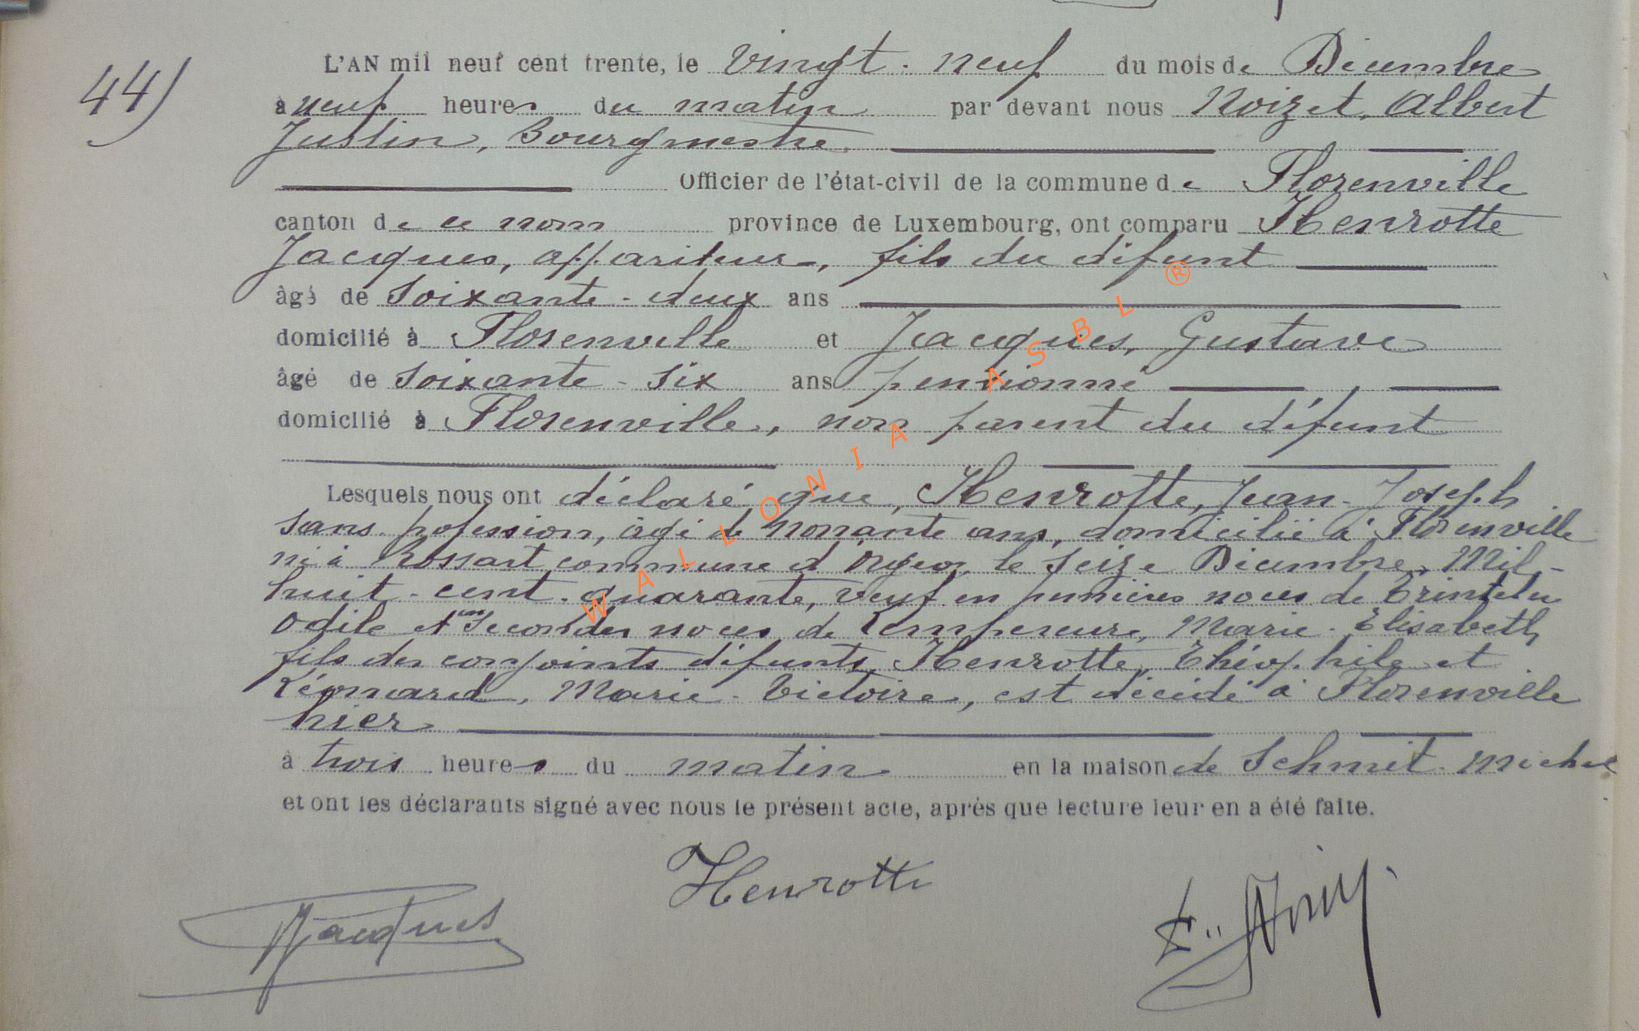 44)
L'AN mil neuf cent trente, le vingt-neuf du mois de Décembre
à neuf heures du matin par devant nous Noizet, Albert
Justin, Bourgmestre.
Officier de l'état-civil de la commune de Florenville
canton de ce nom province de Luxembourg, ont comparu Henrotte
Jacques, appariteur, fils du défunt
âgé de soixante-deux ans
domicilié à Florenville et Jacques, Gustave
âgé de soixante-six ans pensionné
domicilié à Florenville, non parent du défunt
Lesquels nous ont déclaré que, Henrotte, Jean-Joseph
sans profession, âgé de nonante ans, domicilié à Florenville
né à Rossart commune d'Orgeo, le seize Décembre, Mil-
huit-cent-quarante, veuf en premières noces de
Odile et en secondes noces de Lempereure, Marie-Elisabeth,
fils des conjoints défunts, Henrotte, Théophile et
Léonard, Marie-Victoire, est décédé à Florenville
hier
à trois heures du matin en la maison de Schmit-Michel
et ont les déclarants signé avec nous le présent acte, après que lecture leur en a été faite.
Henrotte
GJacques
WALLONIA ASBL ®